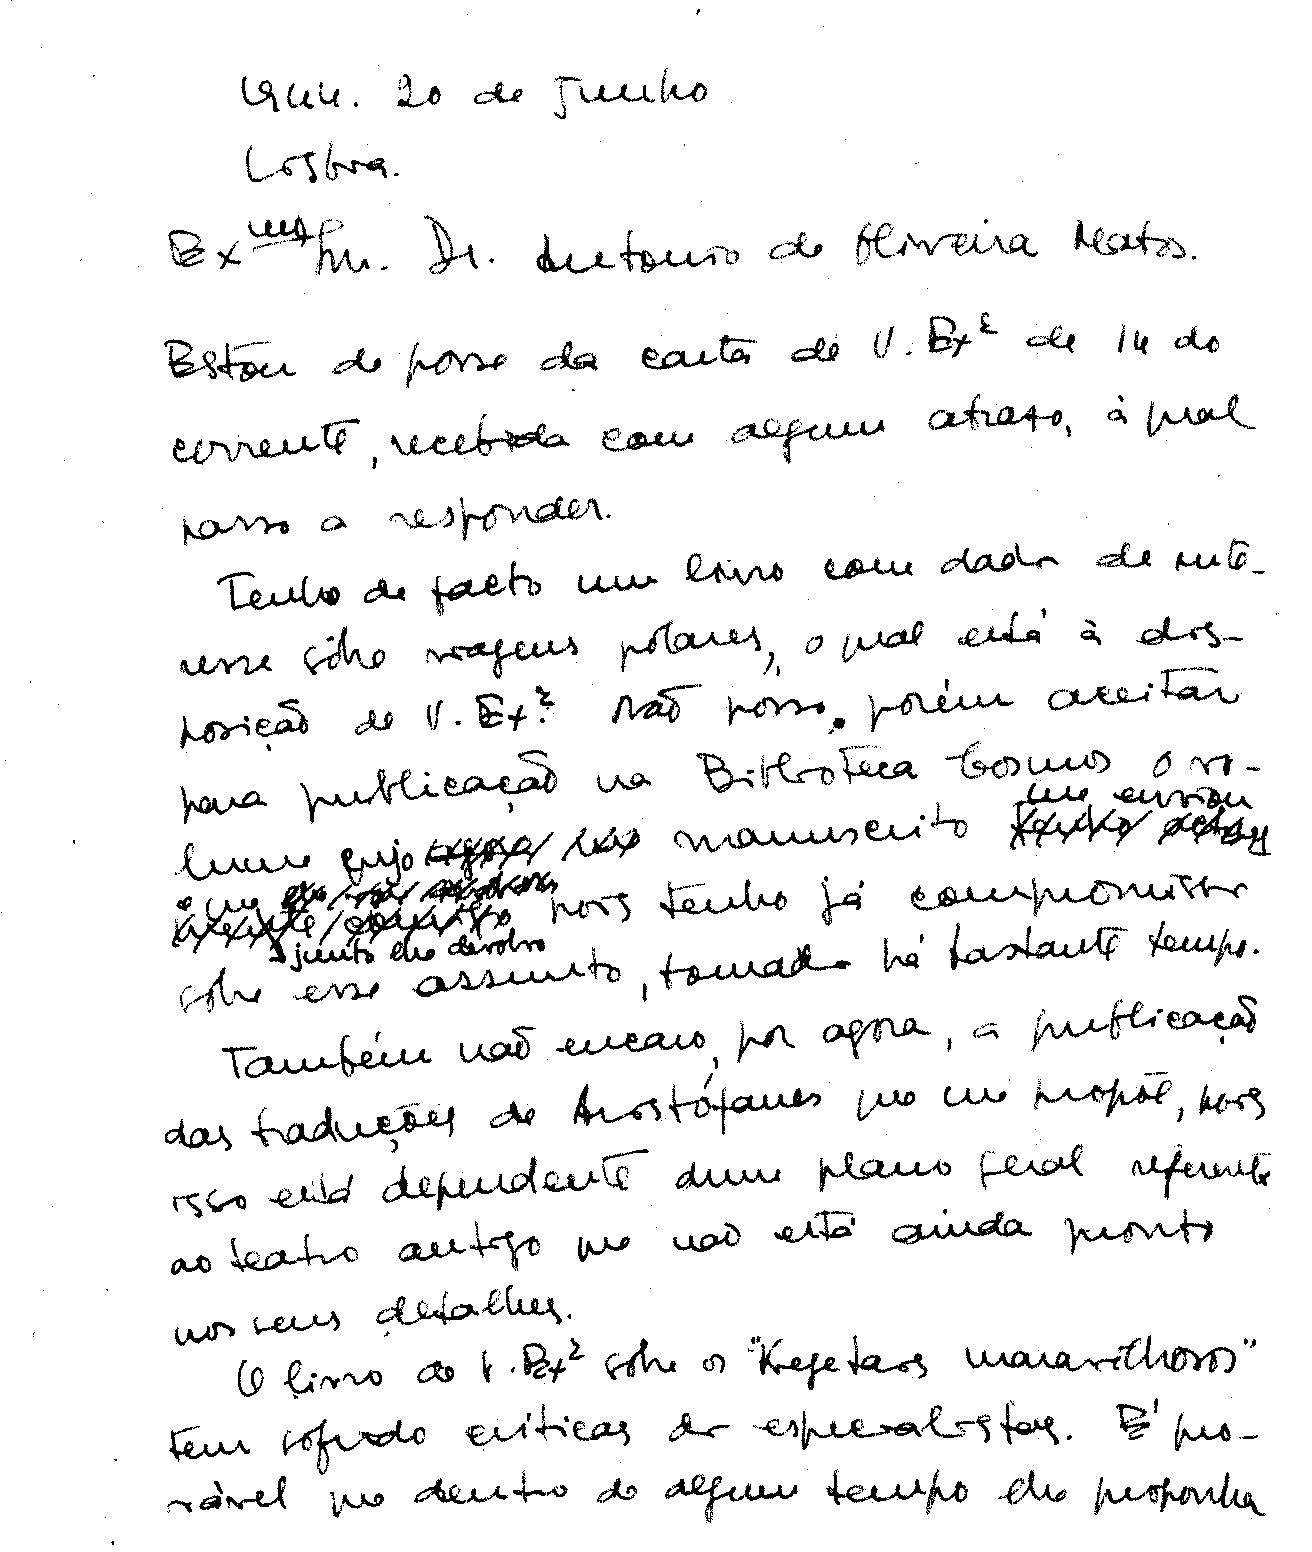 1944. 20 de Junho
Lisboa.
Ex.mo Snr. Dr. Antonio de Oliveira Matos.
Estou de posse da carta de V. Exª de 14 do
corrente, recebida com algum atraso, à qual
passo a responder.
Tenho de facto um livro com dados de inte-
resse sôbre viagens polares, o qual está à dis-
posição de V. Exª. Não posso, porém aceitar
para publicação na Biblioteca Cosmos o vo-
me enviou
lume cujo manuscrito
e que
pois tenho já compromissos
junto lhe devolvo
sobre esse assunto, tomados há bastante tempo.
Também não encaro, por agora, a publicação
das traduções de Aristófanes que me propõe, pois
isso está dependente dum plano geral referente
ao teatro antigo que não está ainda pronto
nos seus detalhes.
O livro de V. Exª sobre os "Vegetais maravilhosos"
tem sofrido críticas de especialistas. É pro-
vável que dentro de algum tempo lhe proponha